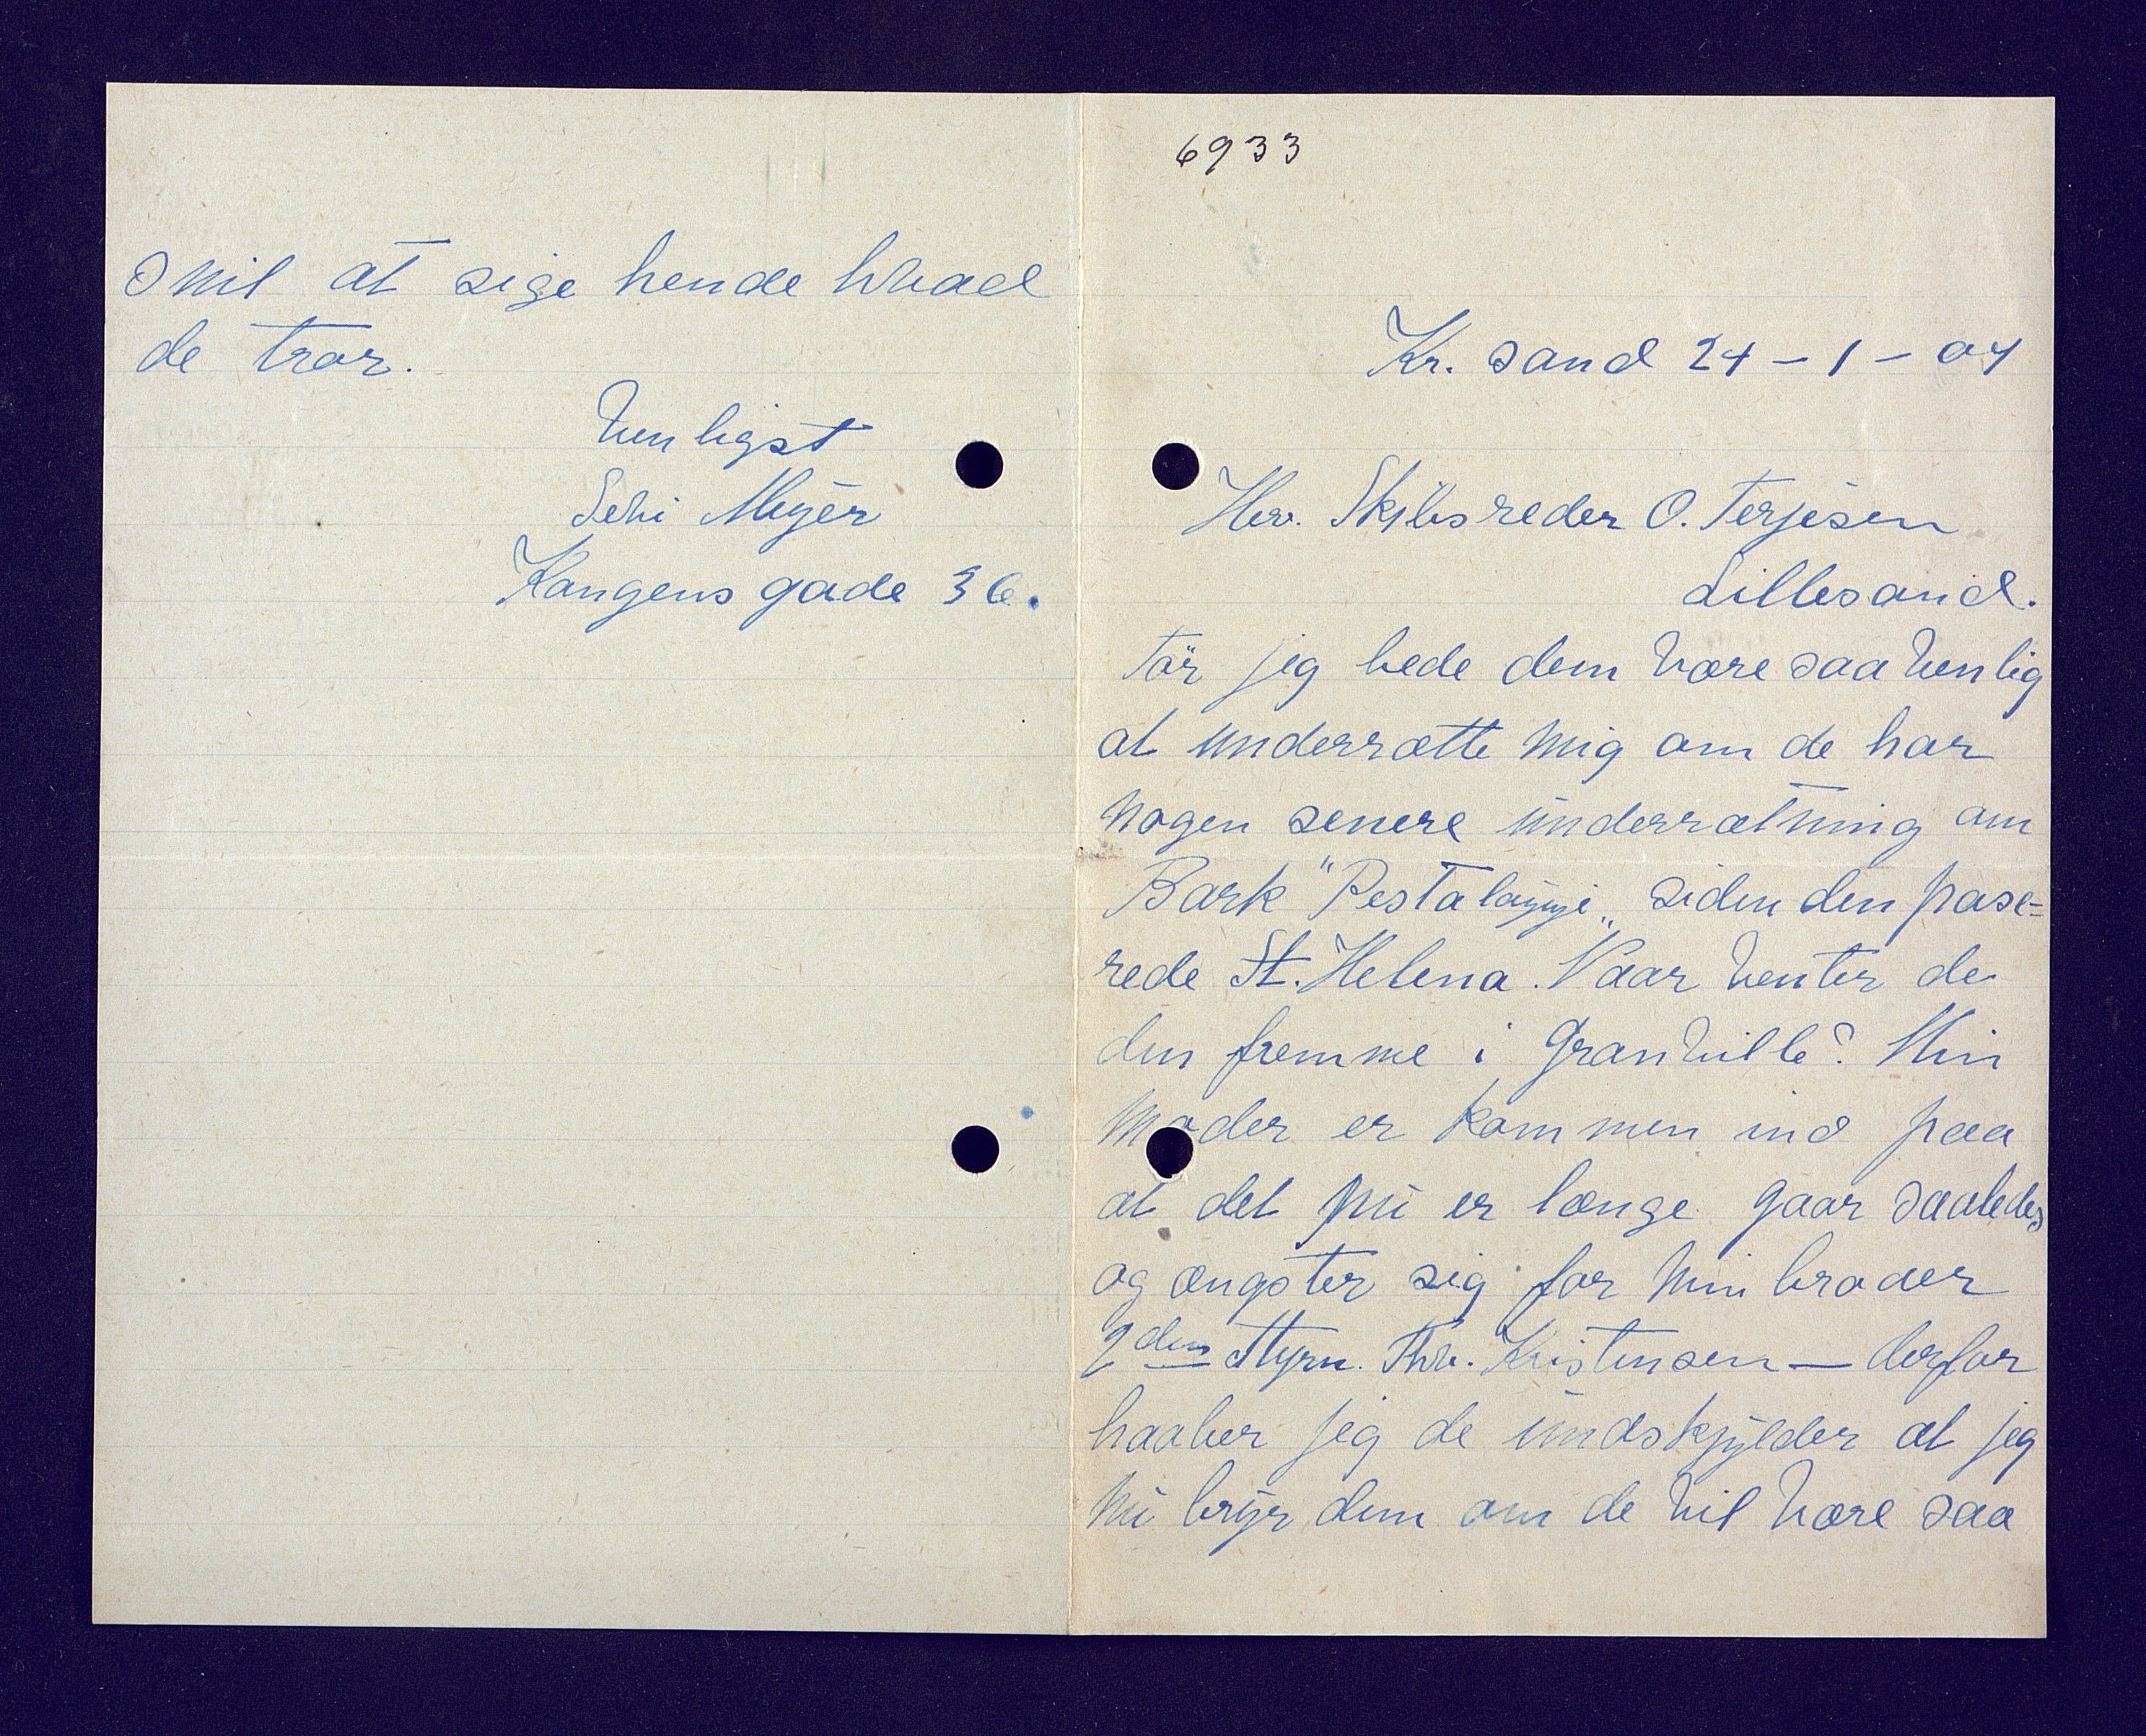 6933
Kr. sand 24 - 1 - 04
Herr. Skibsreder O. Terjesen
Lillesand.
Tör jeg bede dem være saa venlig
at underrætte mig om de har
nogen senere underrætning om
Bark "Pestalozzi„ siden den pase=
rede St. Helena. Naar venter de
den fremme i Granville? Min
moder er kommen ind paa
at det nu er længe gaar saaledes
og ængster sig for min broder
2den Styrm. Thv. Kristensen — derfor
haaber jeg de undskylder at jeg
nu bryr dem om de vil være saa
snil at sige hende hvad
de tror.
Venligst
Meyer
Kongensgade 36.